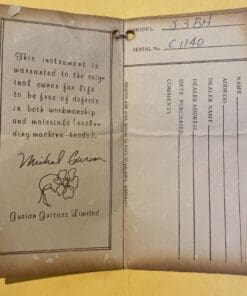 This instrument is
warranted to the orig-
inal owner for life
to be free of defects
in both workmanship
and materials (exclu-
ding machine heads).
Michael Gurian
Gurian Guitars Limited
MODEL S3BH
SERIAL No. C1140
NAME
ADDRESS
DEALER NAME
DEALER ADDRESS
DATE PURCHASED
COMMENTS